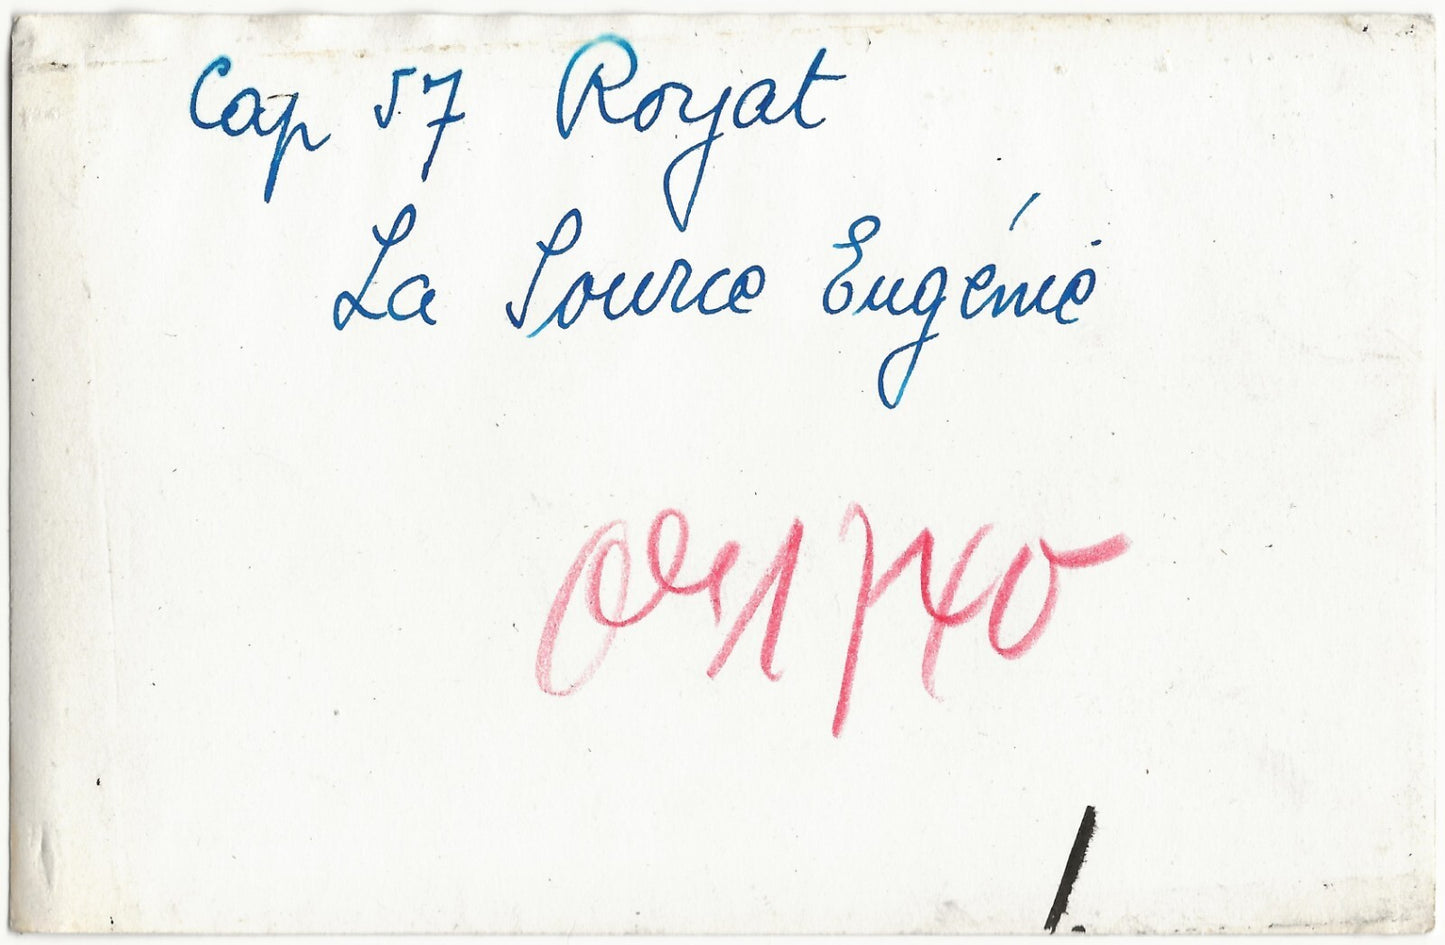 Cap 57 Royat
La Source Eugénie
1740